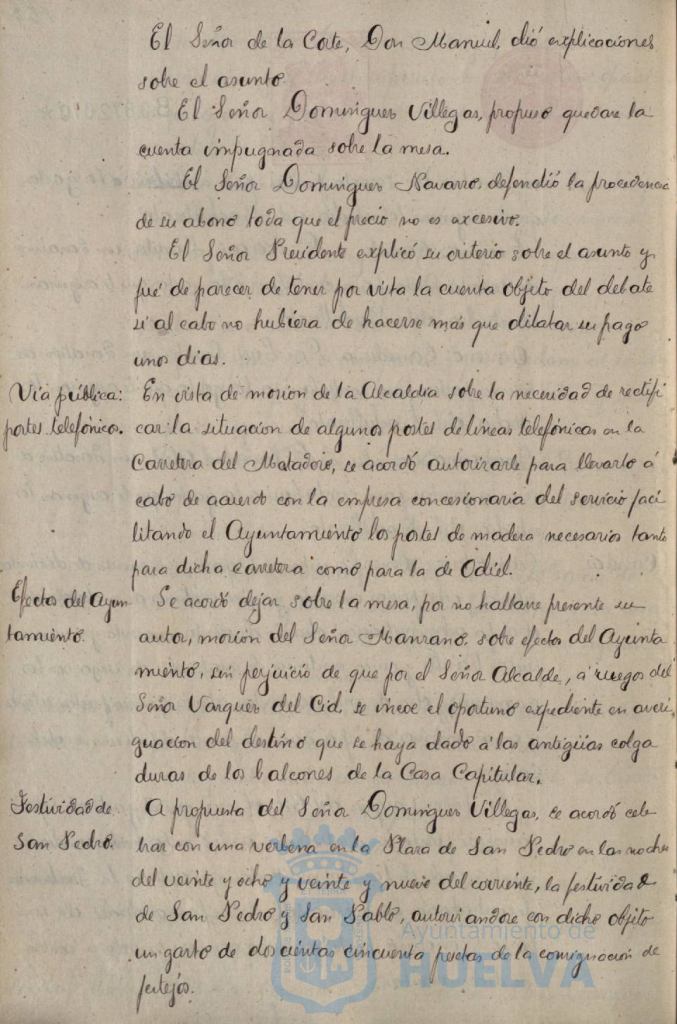 El Señor de la Corte, Don Manuel, dió explicaciones
sobre el asunto.
El Señor Dominguez Villegas, propuso quedare la
cuenta impugnada sobre la mesa.
El Señor Dominguez Navarro, defendió la procedencia
de su abono toda que el precio no es excesivo.
El Señor Presidente explicó su criterio sobre el asunto y
fué de parecer de tener por vista la cuenta objeto del debate
si al cabo no hubiera de hacerse más que dilatar su pago
unos dias.
Via pública:
postes telefónicos.
En vista de moción de la Alcaldía sobre la necesidad de rectifi
car la situación de algunos postes de líneas telefónicas en la
Carretera del Matadero, se acordó autorizarle para llevarlo á
cabo de acuerdo con la empresa concesionaria del servicio faci
litando el Ayuntamiento los postes de madera necesarios tanto
para dicha carretera como para la de Odiel.
Efectos del Ayun
tamiento.
Se acordó dejar sobre la mesa, por no hallarse presente su
autor, moción del Señor Manzano, sobre efectos del Ayunta
miento, sin perjuicio de que por el Señor Alcalde, á ruegos del
Señor Vazquez del Cid, se incoe el oportuno expediente en averi
guacion del destino que se haya dado á las antigüas colga
duras de los balcones de la Casa Capitular.
Festividad de
San Pedro.
A propuesta del Señor Dominguez Villegas, se acordó cele
brar con una verbena en la Plaza de San Pedro en las noches
del veinte y ocho y veinte y nueve del corriente, la festividad
de San Pedro y San Pablo, autorizandose con dicho objeto
un gasto de doscientas cincuenta pesetas de la consignación de
festejos.
Ayuntamiento de
HUELVA